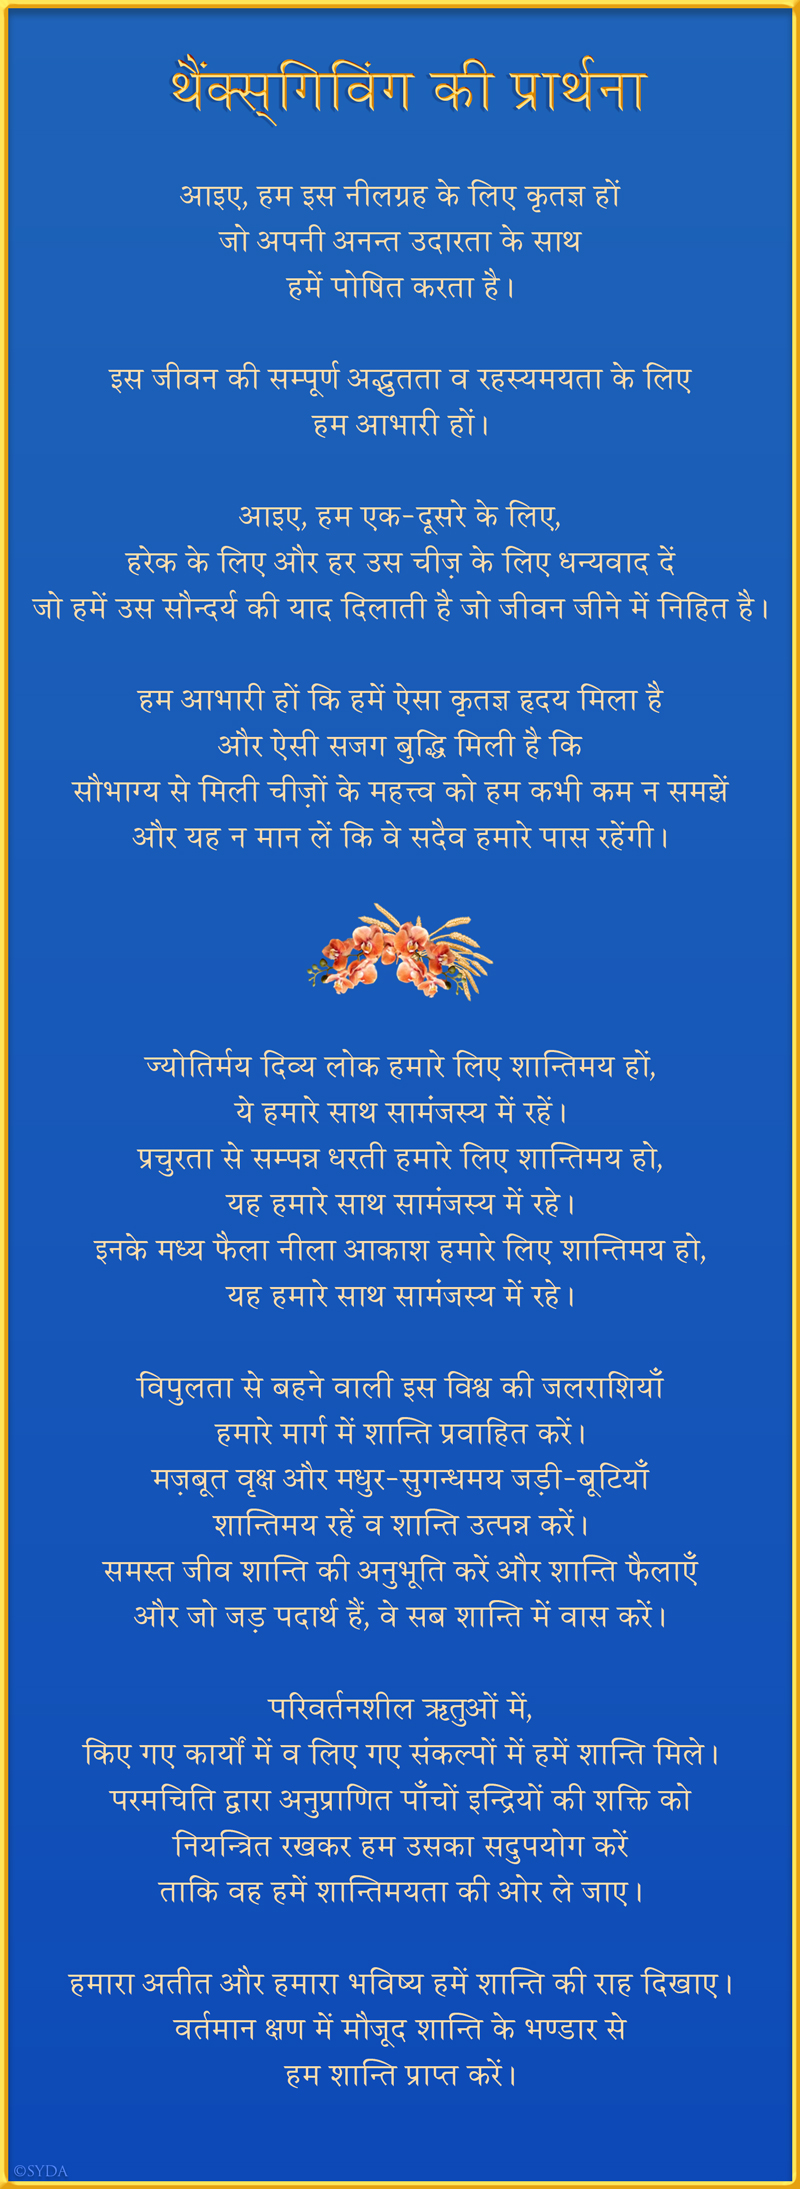 थैंक्स्‌गिविंग की प्रार्थना
आइए, हम इस नीलग्रह के लिए कृतज्ञ हों
जो अपनी अनन्त उदारता के साथ
हमें पोषित करता है।
इस जीवन की सम्पूर्ण अद्भुतता व रहस्यमयता के लिए
हम आभारी हों।
आइए, हम एक-दूसरे के लिए,
हरेक के लिए और हर उस चीज़ के लिए धन्यवाद दें
जो हमें उस सौन्दर्य की याद दिलाती है जो जीवन जीने में निहित है।
हम आभारी हों कि हमें ऐसा कृतज्ञ हृदय मिला है
और ऐसी सजग बुद्धि मिली है कि
सौभाग्य से मिली चीज़ों के महत्त्व को हम कभी कम न समझें
और यह न मान लें कि वे सदैव हमारे पास रहेंगी।
ज्योतिर्मय दिव्य लोक हमारे लिए शान्तिमय हों,
ये हमारे साथ सामंजस्य में रहें।
प्रचुरता से सम्पन्न धरती हमारे लिए शान्तिमय हो,
यह हमारे साथ सामंजस्य में रहे।
इनके मध्य फैला नीला आकाश हमारे लिए शान्तिमय हो,
यह हमारे साथ सामंजस्य में रहे।
विपुलता से बहने वाली इस विश्व की जलराशियाँ
हमारे मार्ग में शान्ति प्रवाहित करें।
मज़बूत वृक्ष और मधुर-सुगन्धमय जड़ी-बूटियाँ
शान्तिमय रहें व शान्ति उत्पन्न करें।
समस्त जीव शान्ति की अनुभूति करें और शान्ति फैलाएँ
और जो जड़ पदार्थ हैं, वे सब शान्ति में वास करें।
परिवर्तनशील ऋतुओं में,
किए गए कार्यों में व लिए गए संकल्पों में हमें शान्ति मिले।
परमचिति द्वारा अनुप्राणित पाँचों इन्द्रियों की शक्ति को
नियन्त्रित रखकर हम उसका सदुपयोग करें
ताकि वह हमें शान्तिमयता की ओर ले जाए।
हमारा अतीत और हमारा भविष्य हमें शान्ति की राह दिखाए।
वर्तमान क्षण में मौजूद शान्ति के भण्डार से
हम शान्ति प्राप्त करें।
©SYDA